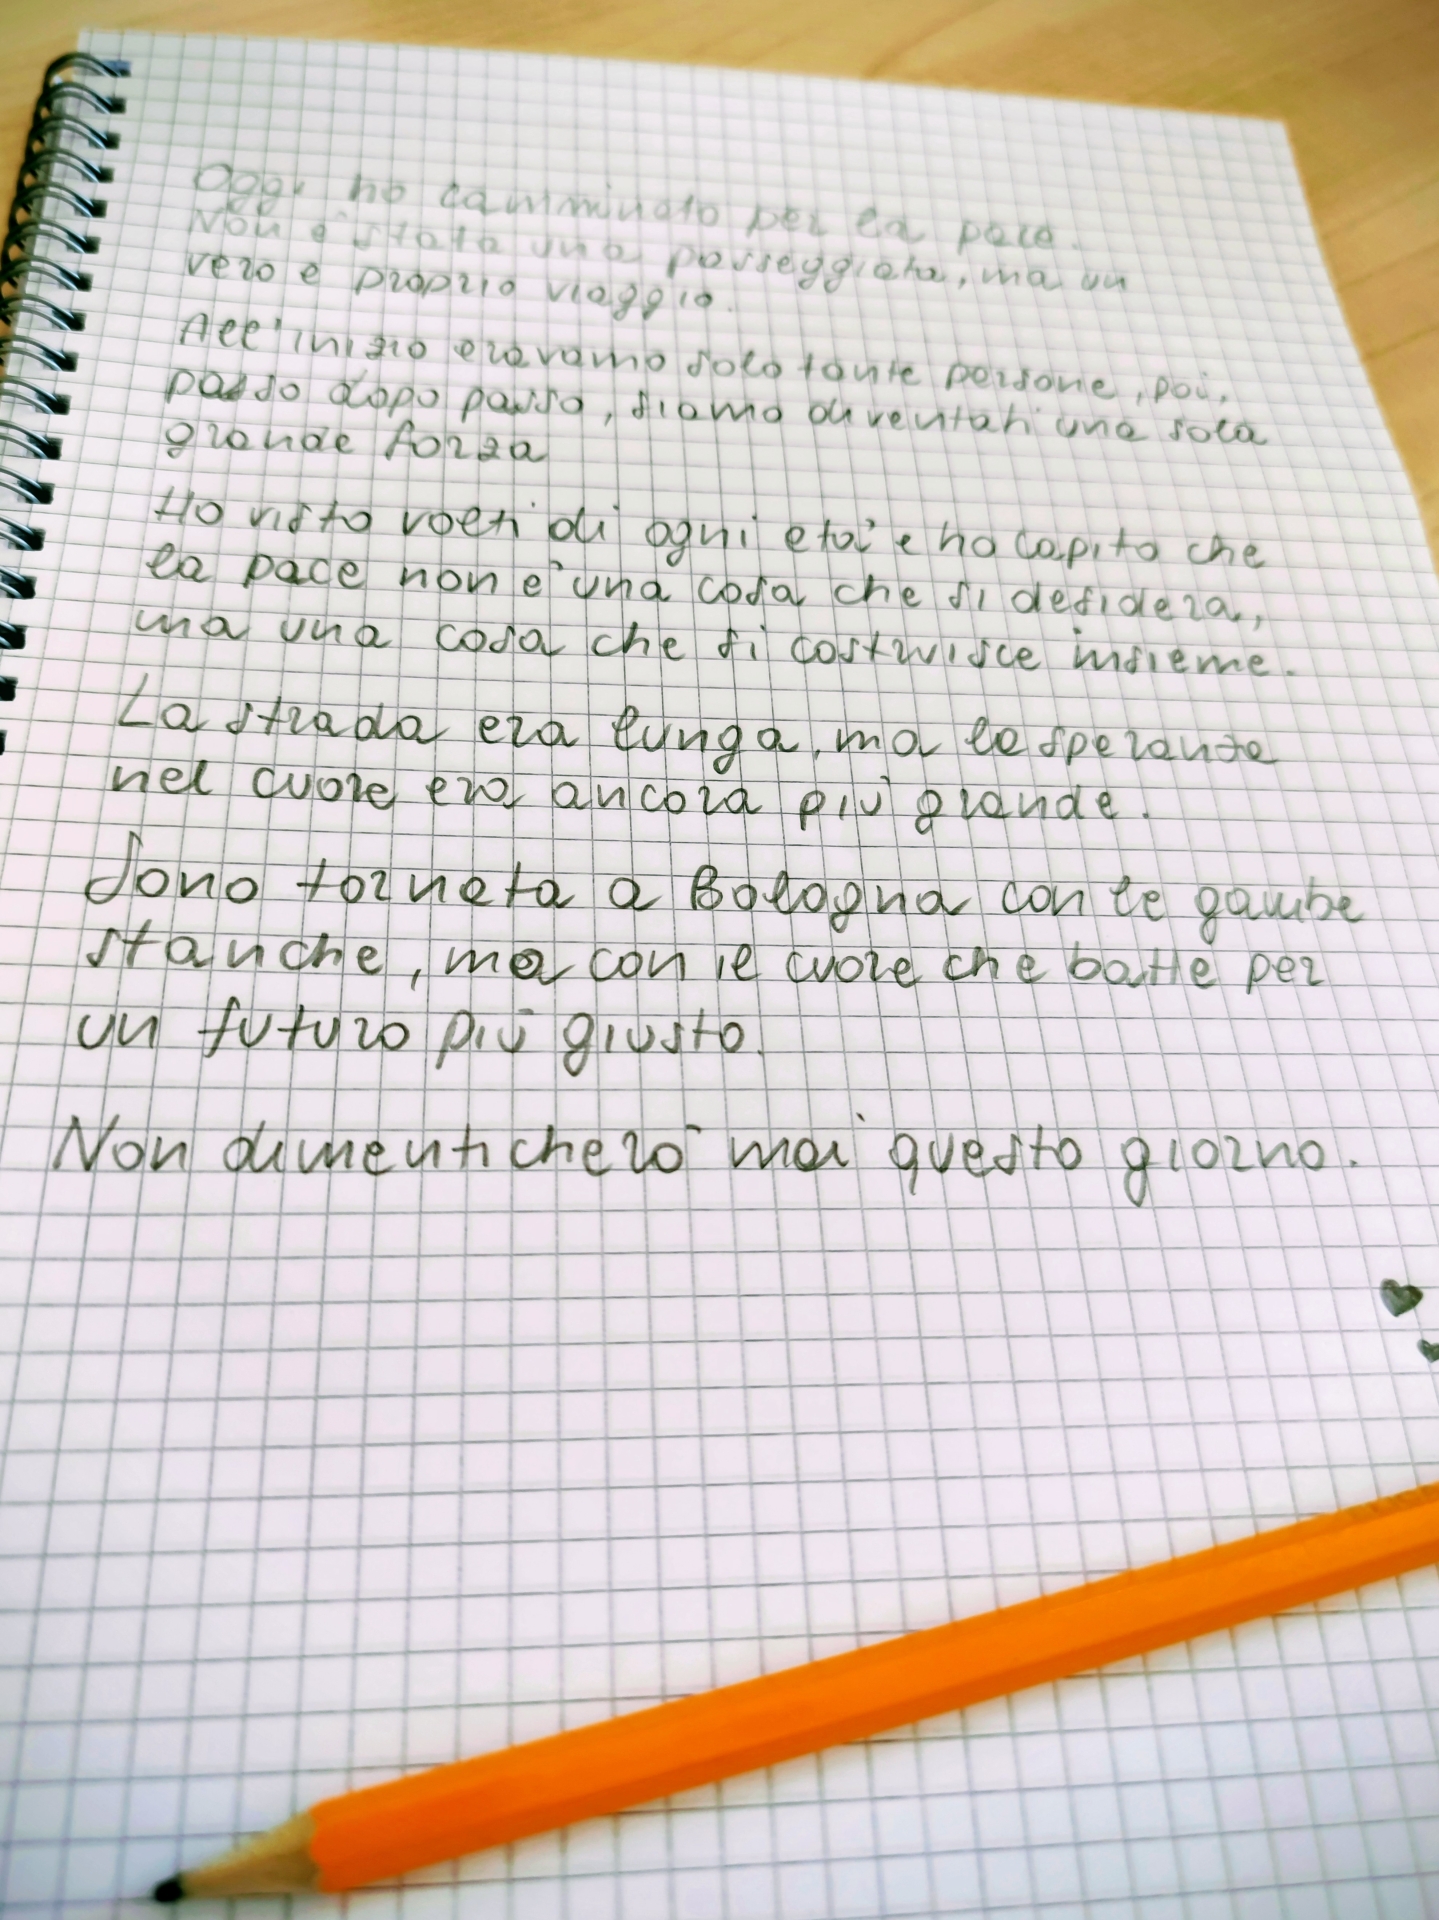 Oggi ho camminato per la pace.
Non è stata una passeggiata, ma un
vero e proprio viaggio.
All'inizio eravamo solo tante persone, poi,
passo dopo passo, siamo diventati una sola
grande forza
Ho visto volti di ogni età e ho capito che
la pace non è una cosa che si desidera,
ma una cosa che si costruisce insieme.
La strada era lunga, ma la speranza
nel cuore era ancora più grande.
Sono tornata a Bologna con le gambe
stanche, ma con il cuore che batte per
un futuro più giusto.
Non dimenticherò mai questo giorno.